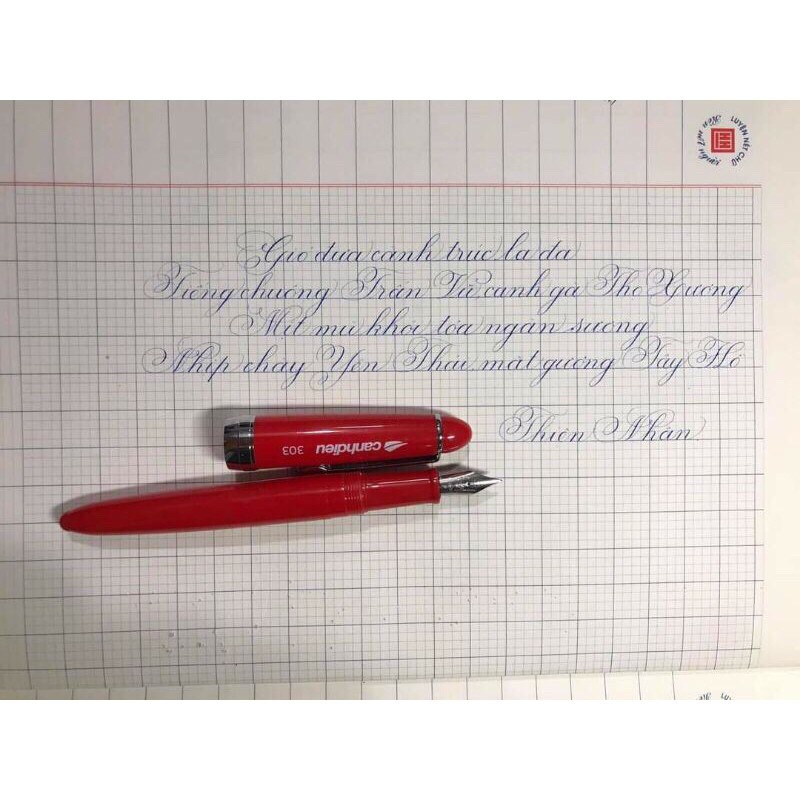 LUYỆN NÉT CHỮ
Rèn nết người
Gió đưa cành trúc la đà
Tiếng chuông Trấn Vũ canh gà Thọ Xương
Mịt mù khói tỏa ngàn sương
Nhịp chày Yên Thái mặt gương Tây Hồ
Thiện Nhân
canhdieu
303